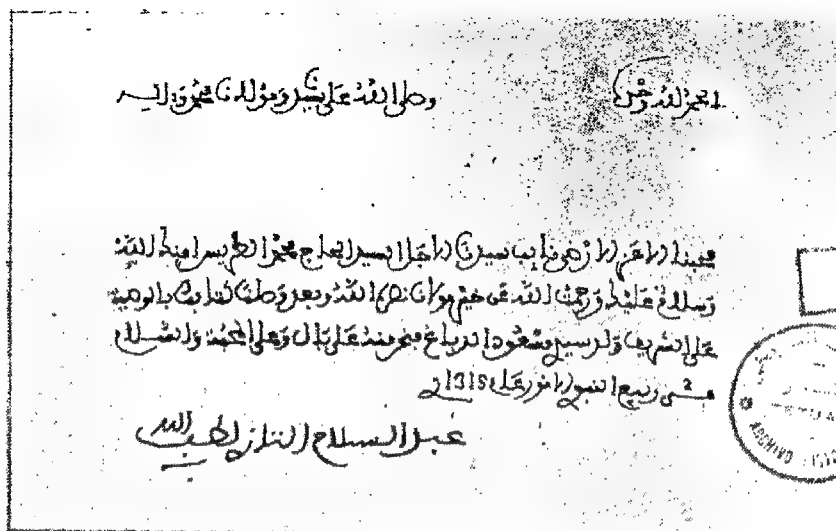 الحمد لله وحده
وصلى الله على سيدنا ومولانا محمد وآله
محبنا الأعز الأرضى نايب سيدنا الأجل السيد الحاج محمد الطريس أمنك الله
وسلام عليك ورحمت الله عن خير مولانا نصره الله وبعد وصلنا كتابك بالوصية
على الشريف ولد سيدي مسعود الدباغ فنحن منه على بال وعلى المحبة والسلام
في ربيع النبوي الأنور عام 1318
عبد السلام التازي لطف الله به
ARCHIVO